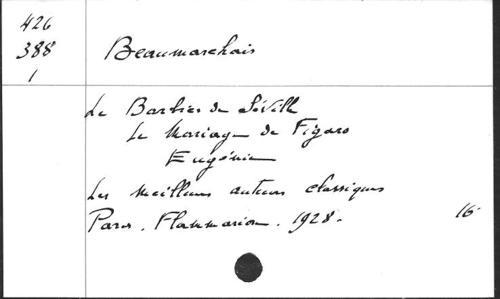 426
388
1
Beaumarchais
Le Barbier de Séville
Le Mariage de Figaro
Eugénie
Les meilleurs auteurs classiques
Paris. Flammarion. 1928. 16